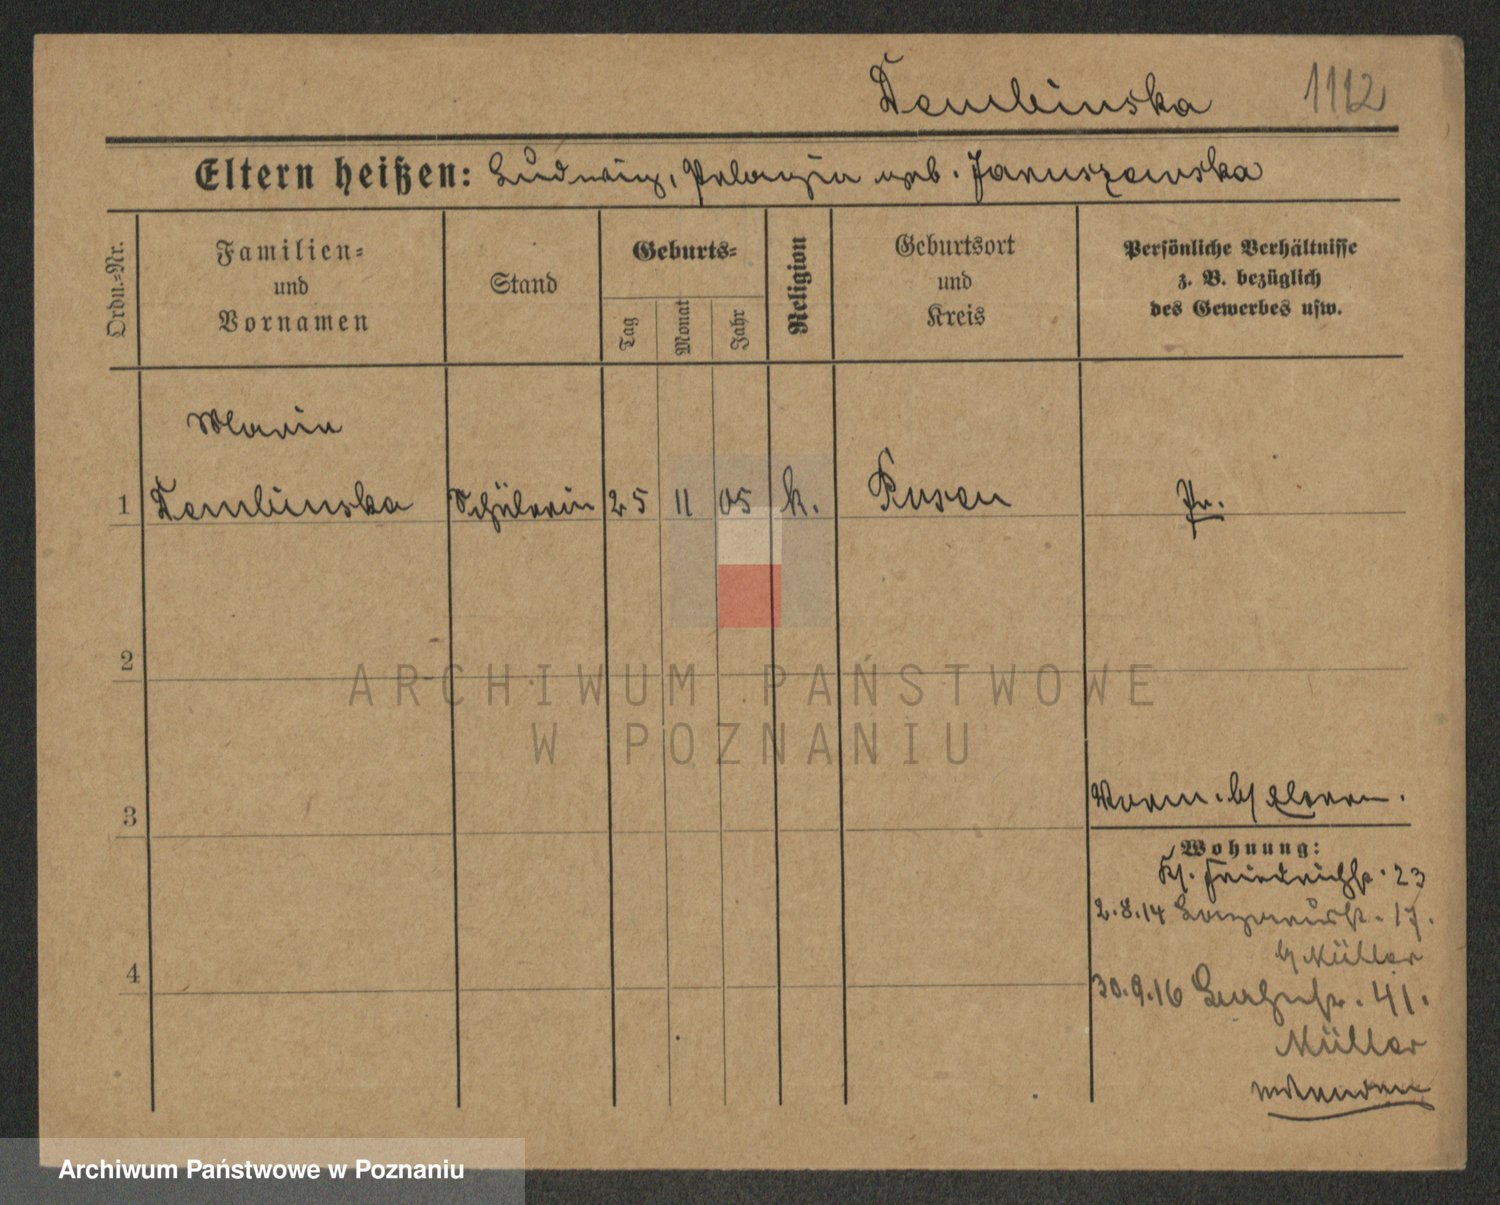 Dembinska 1112
Eltern heißen: Ludwig, Pelagia geb. Januszewska
Ordn.-Nr.
Familien-
und
Vornamen
Stand
Geburts-
Tag
Monat
Jahr
Religion
Geburtsort
und
Kreis
Persönliche Verhältnisse
z. B. bezüglich
des Gewerbes usw.
Maria
1 Dembinska Schülerin 25 11 05 k. Posen Pr.
2
3
4
Vorm. b/ Eltern.
Wohnung:
Kl. Friedrichst. 23
2.8.14 17.
b/ Müller
30.9.16 41.
Müller
ARCHIWUM PAŃSTWOWE
W POZNANIU
Archiwum Państwowe w Poznaniu